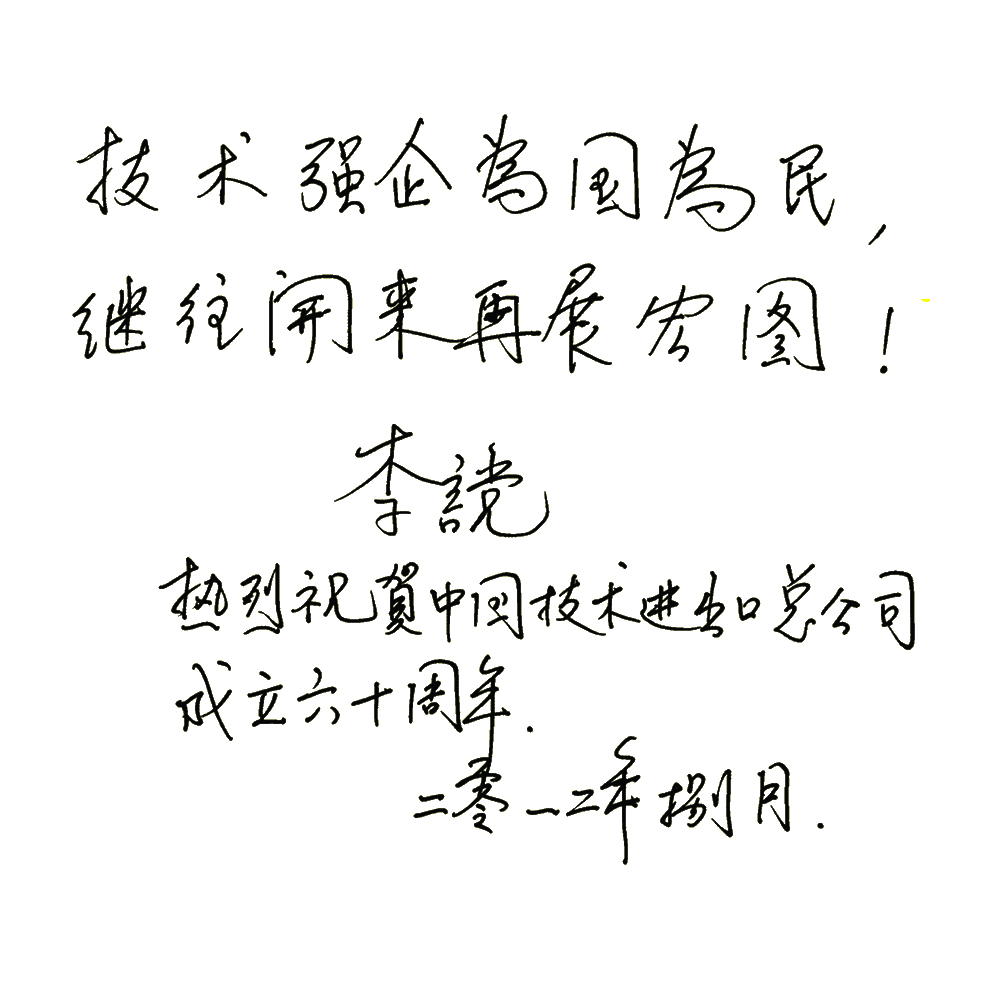 技术强企為国為民,
继往開来再展宏图!
李谠
热烈祝賀中国技术进出口总公司
成立六十周年.
二零一二年捌月.